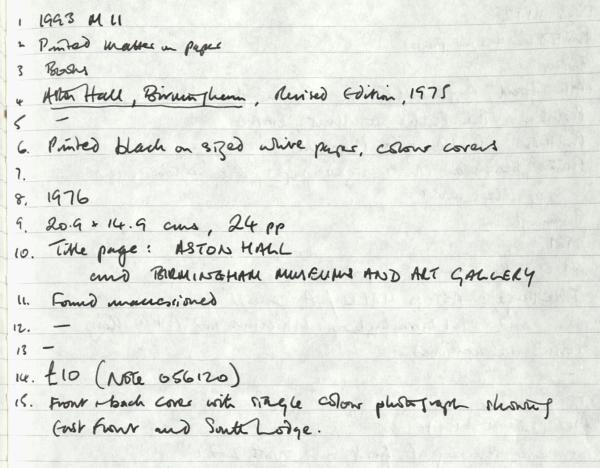 1 1993 M 11
2 Printed matter on paper
3 Books
4 Aston Hall, Birmingham, Revised Edition, 1975
5 —
6. Printed black on sized white paper, colour covers
7.
8. 1976
9. 20.9 × 14.9 cms, 24 pp
10. Title page: ASTON HALL
and BIRMINGHAM MUSEUMS AND ART GALLERY
11. Found unaccessioned
12. —
13 —
14. £10 (Note 056120)
15. Front + back cover with single colour photograph showing
East Front and South Lodge.